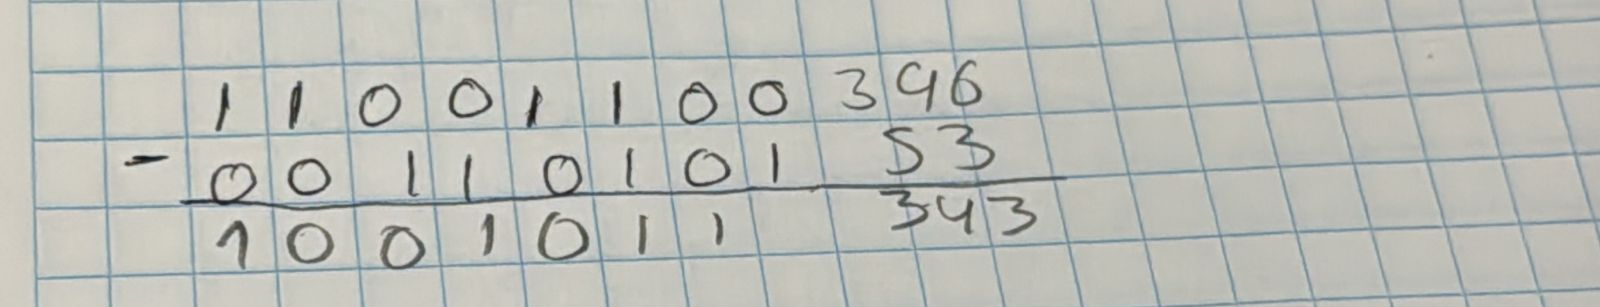 11001100 396
- 00110101 53
1001011 343